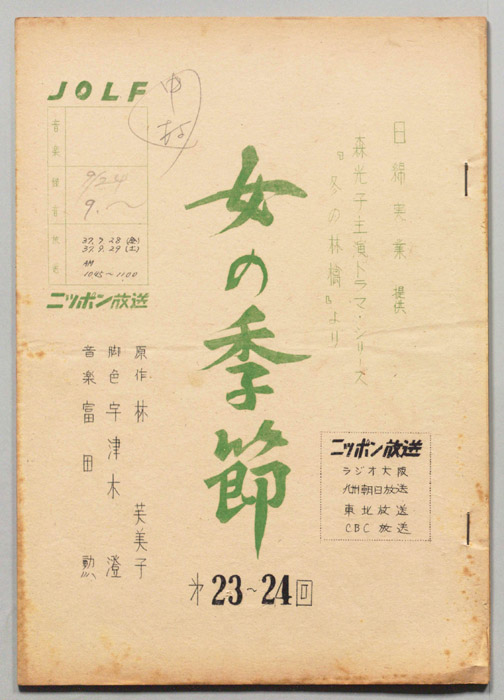 日綿実業 提供
森光子主演ドラマ・シリーズ
“冬の林檎”より
女の季節
才23～24回
JOLF
中村
音楽
録音 9/24 9.～
放送 37.9.28(金)
37.9.29(土)
AM
1045～1100
ニッポン放送
原作 林 芙美子
脚色 宇津木 澄
音楽 富田 勲
ニッポン放送
ラジオ大阪
九州朝日放送
東北放送
CBC放送